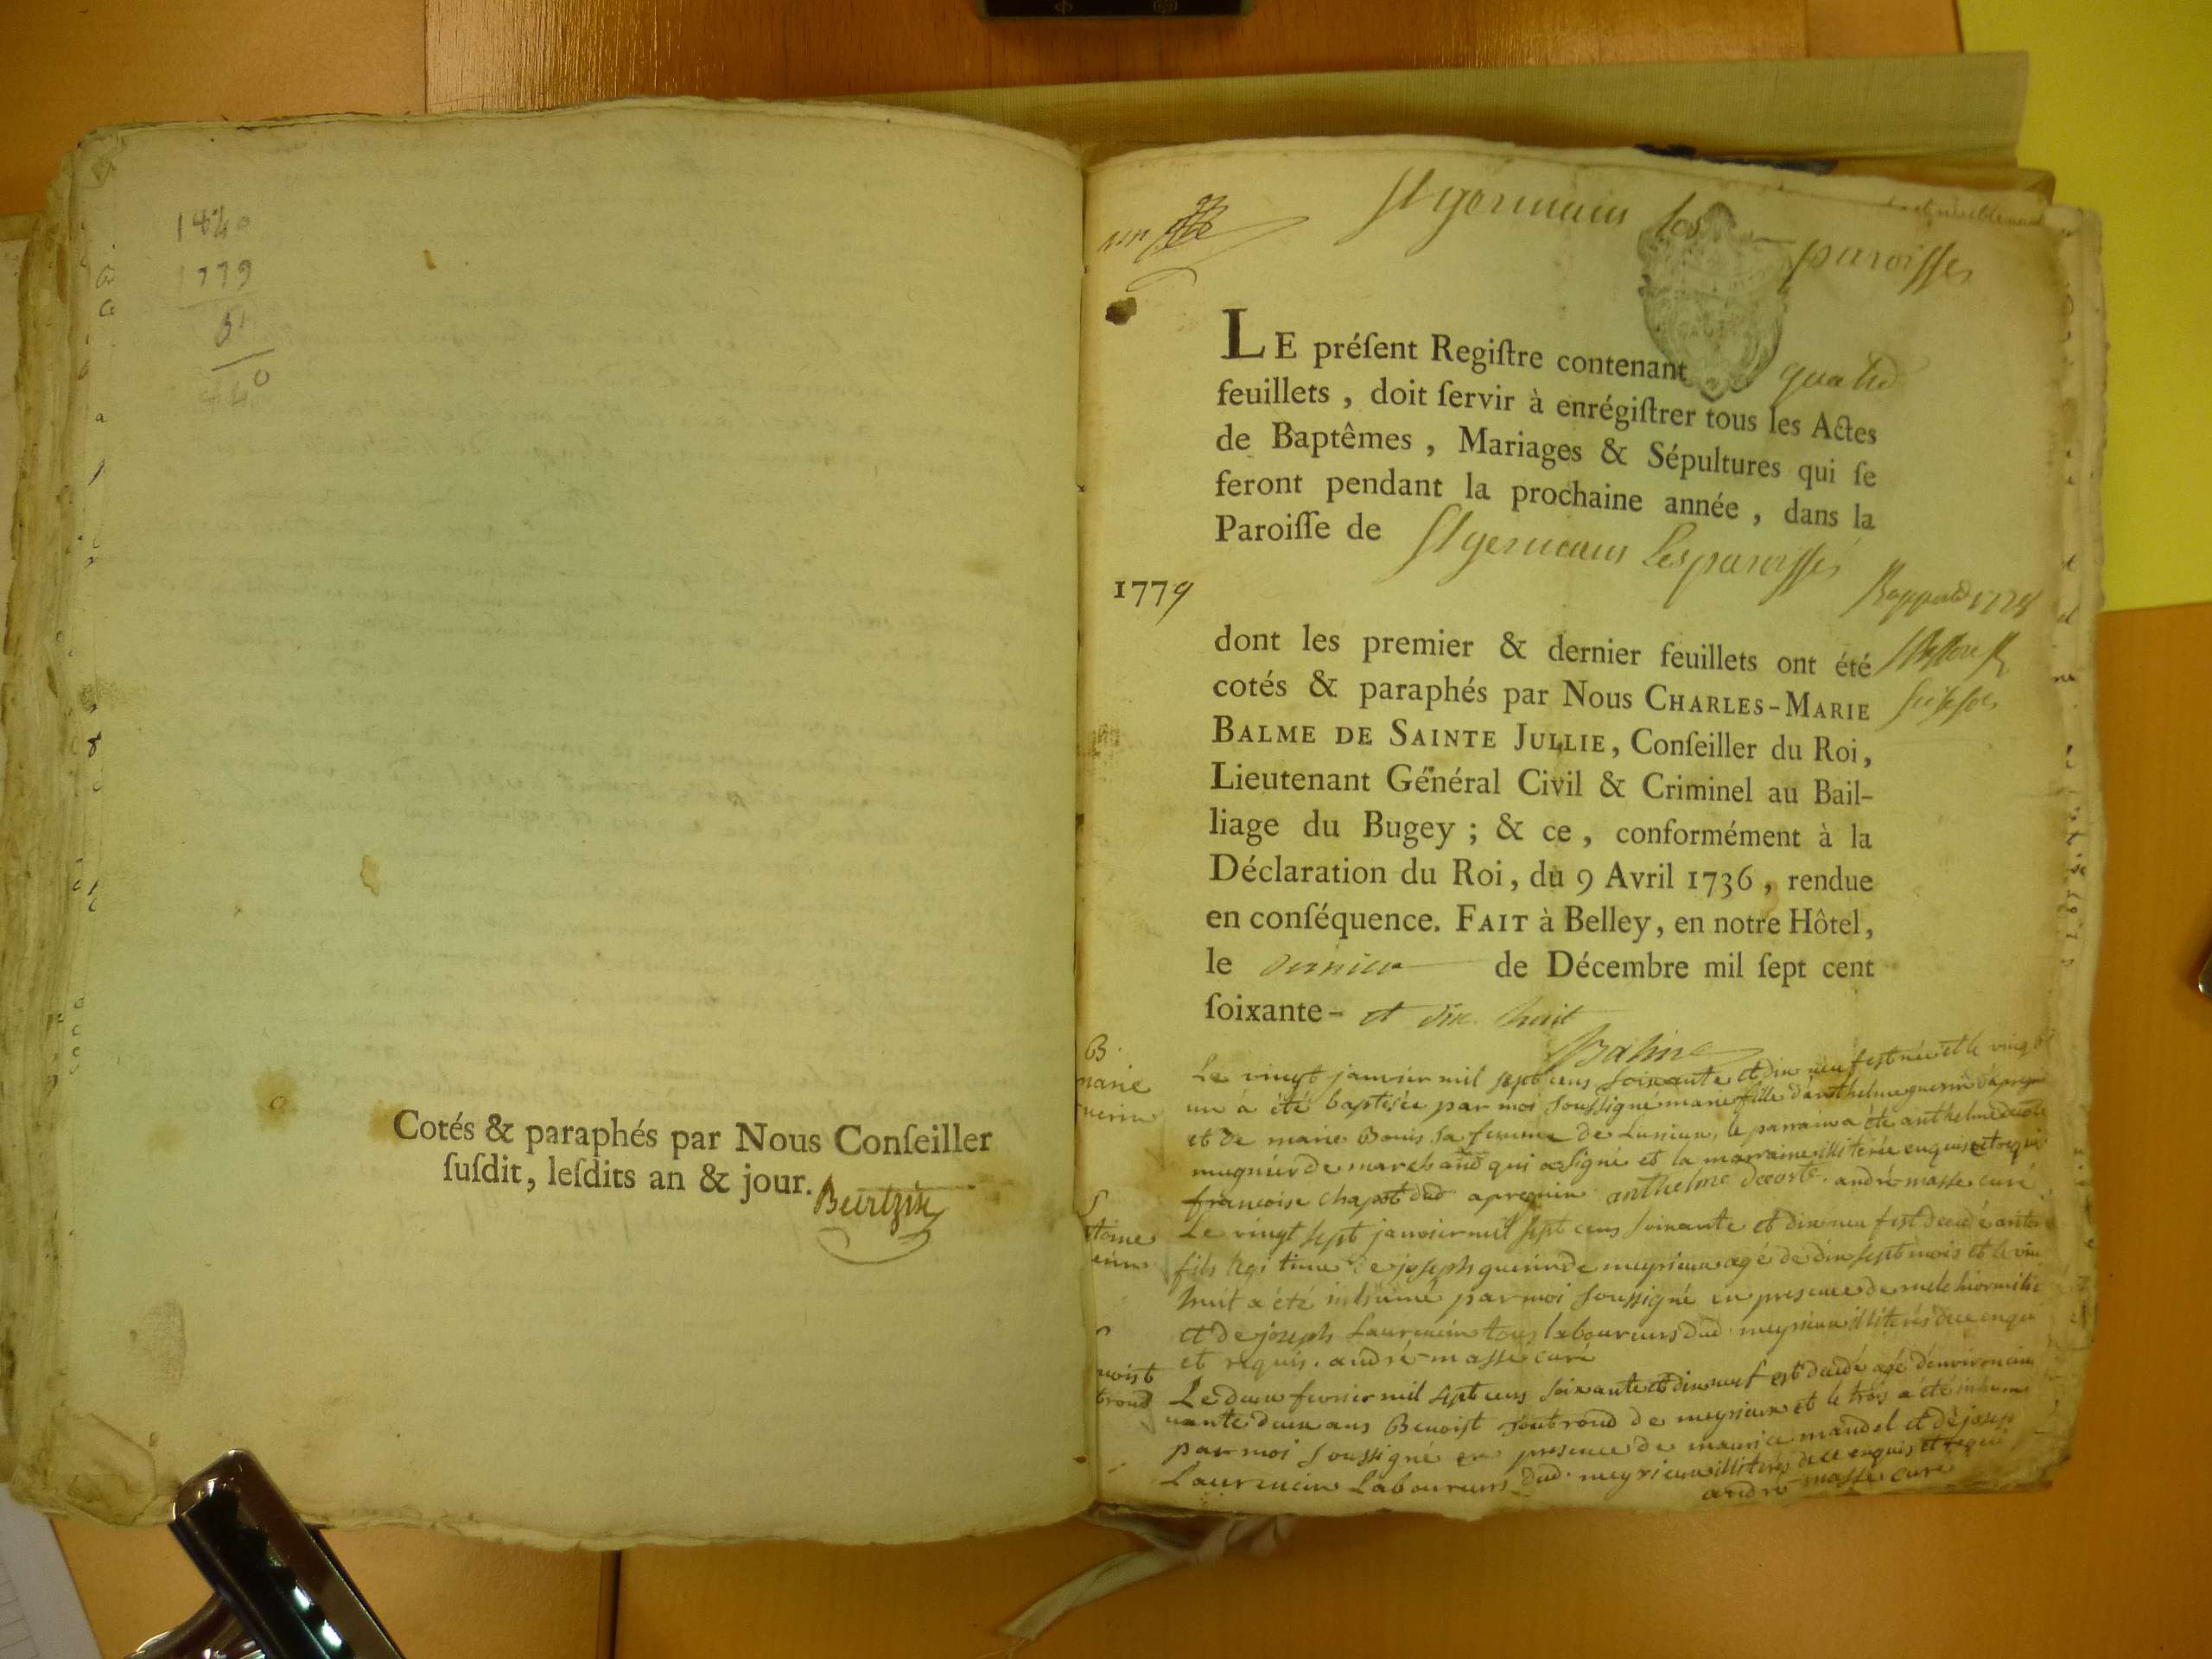 1779
Cotés & paraphés par Nous Conſeiller
ſuſdit, leſdits an & jour.
un
St germain les
paroisses
LE préſent Regiſtre contenant quatre
feuillets, doit ſervir à enrégiſtrer tous les Actes
de Baptêmes, Mariages & Sépultures qui ſe
feront pendant la prochaine année, dans la
Paroiſſe de St germain Les paroisses
1779
dont les premier & dernier feuillets ont été
cotés & paraphés par Nous CHARLES-MARIE
BALME DE SAINTE JULLIE, Conſeiller du Roi,
Lieutenant Général Civil & Criminel au Bail-
liage du Bugey ; & ce, conformément à la
Déclaration du Roi, du 9 Avril 1736, rendue
en conſéquence. FAIT à Belley, en notre Hôtel,
le dernier de Décembre mil ſept cent
ſoixante- et dix huit
Balme
B
marie
guerin
Le vingt janvier mil sept cens soixante et dix neuf est née et le vingt
un a été baptisée par moi soussigné marie fille d'anthelme guerin
et de marie Bonis sa femme de Lussieu, le parrain a été anthelme
mugnier de marchand qui a signé et la marraine illiterée enquise et requise
francoise chapot dud apremin anthelme decorte andré masse curé
S
Le vingt sept janvier mil sept cens soixante et dix neuf est decedé
fils legitime de joseph guerin de meyrieu age de dix sept mois et le vin
huit a été inhumé par moi soussigné en presence de melchior
et de joseph Laurencin tous laboureurs dud. meyrieu illiterés de ce enquis
et requis. andré masse curé
Le deux fevrier mil sept cens soixante et dix neuf est decedé agé d'environ cin
quante deux ans Benoist de meyrieu et le trois a été inhumé
par moi soussigné en presence de maurice mandel et de josep
Laurencin Laboureurs dud. meyrieu illiterés de ce enquis et requis
andré masse curé